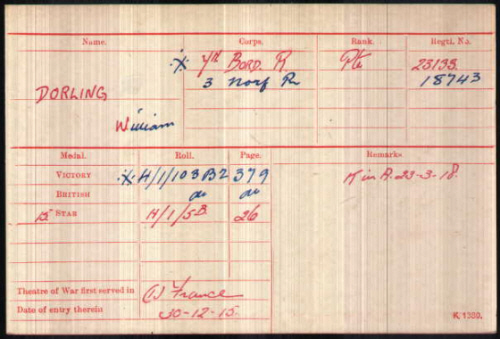 Name. Corps. Rank. Regtl. No.
DORLING ※ 7/th Bord. R Pte 23135.
William 3 Norf R 18743
Medal. Roll. Page. Remarks.
VICTORY ※ H/1/103B2 379 K in A. 23-3-18.
BRITISH do do
15 STAR H/1/5B 26
Theatre of War first served in (1) France
Date of entry therein 20-12-15
K 1380.